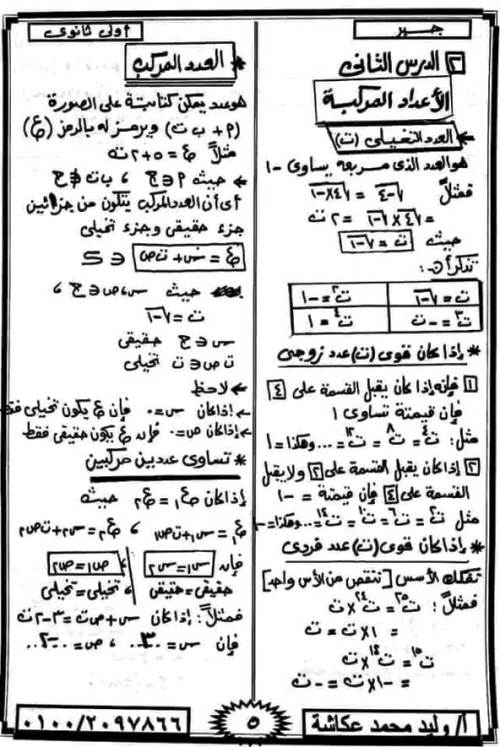 جبر
أولى ثانوى
٢ الدرس الثانى
الأعداد المركبة
← العدد التخيلى (ت)
هو العدد الذى مربعه يساوى -١
فمثلاً √-٤ = √٤×-١
= √٤ × √-١ = ٢ ت
حيث ت = √-١
تذكر أن:
ت = √-١ ت² = -١
ت³ = -ت ت⁴ = ١
* إذا كان قوى (ت) عدد زوجى
١ فإنه إذا كان يقبل القسمة على ٤
فإن قيمته تساوى ١
مثل: ت⁴ = ت⁸ = ت¹² = ... وهكذا = ١
٢ إذا كان يقبل القسمة على ٢ ولا يقبل
القسمة على ٤ فإن قيمته = -١
مثل ت² = ت⁶ = ت¹⁰ = ت¹⁴ = ... وهكذا = -١
* إذا كان قوى (ت) عدد فردى
تفكك الأسس [تنتقص من الأس واحد]
فمثلاً: ت²⁵ = ت²⁴ × ت
= ١ × ت = ت
ت¹⁵ = ت¹⁴ × ت
= -١ × ت = -ت
* العدد المركب
هو عدد يمكن كتابته على الصورة
(أ + ب ت) ويرمز له بالرمز (ع)
مثلاً ع = ٥ + ٢ ت
← حيث أ ∈ ح ، ب ∈ ح
أى أن العدد المركب يتكون من جزائين
جزء حقيقى وجزء تخيلى
ع = س + ت ص ∈
حيث س، ص ∈ ح ،
ت = √-١
س ∈ ح حقيقى
ت ص ∈ ت تخيلى
← لاحظ
← إذا كان س = ٠ فإن ع يكون تخيلى فقط
← إذا كان ص = ٠ فإنه ع يكون حقيقى فقط
* تساوى عددين مركبين
إذا كان ع₁ = ع₂ حيث
ع₁ = س₁ + ت ص₁ ، ع₂ = س₂ + ت ص₂
فإنه س₁ = س₂ ، ص₁ = ص₂
حقيقى = حقيقى ، تخيلى = تخيلى
فمثلاً: إذا كان س + ص ت = ٣ - ٢ ت
فإن س = ..٣.. ، ص = ..-٢..
أ/ وليد محمد عكاشة
٥
٠١٠٠/٢٠٩٧٨٦٦